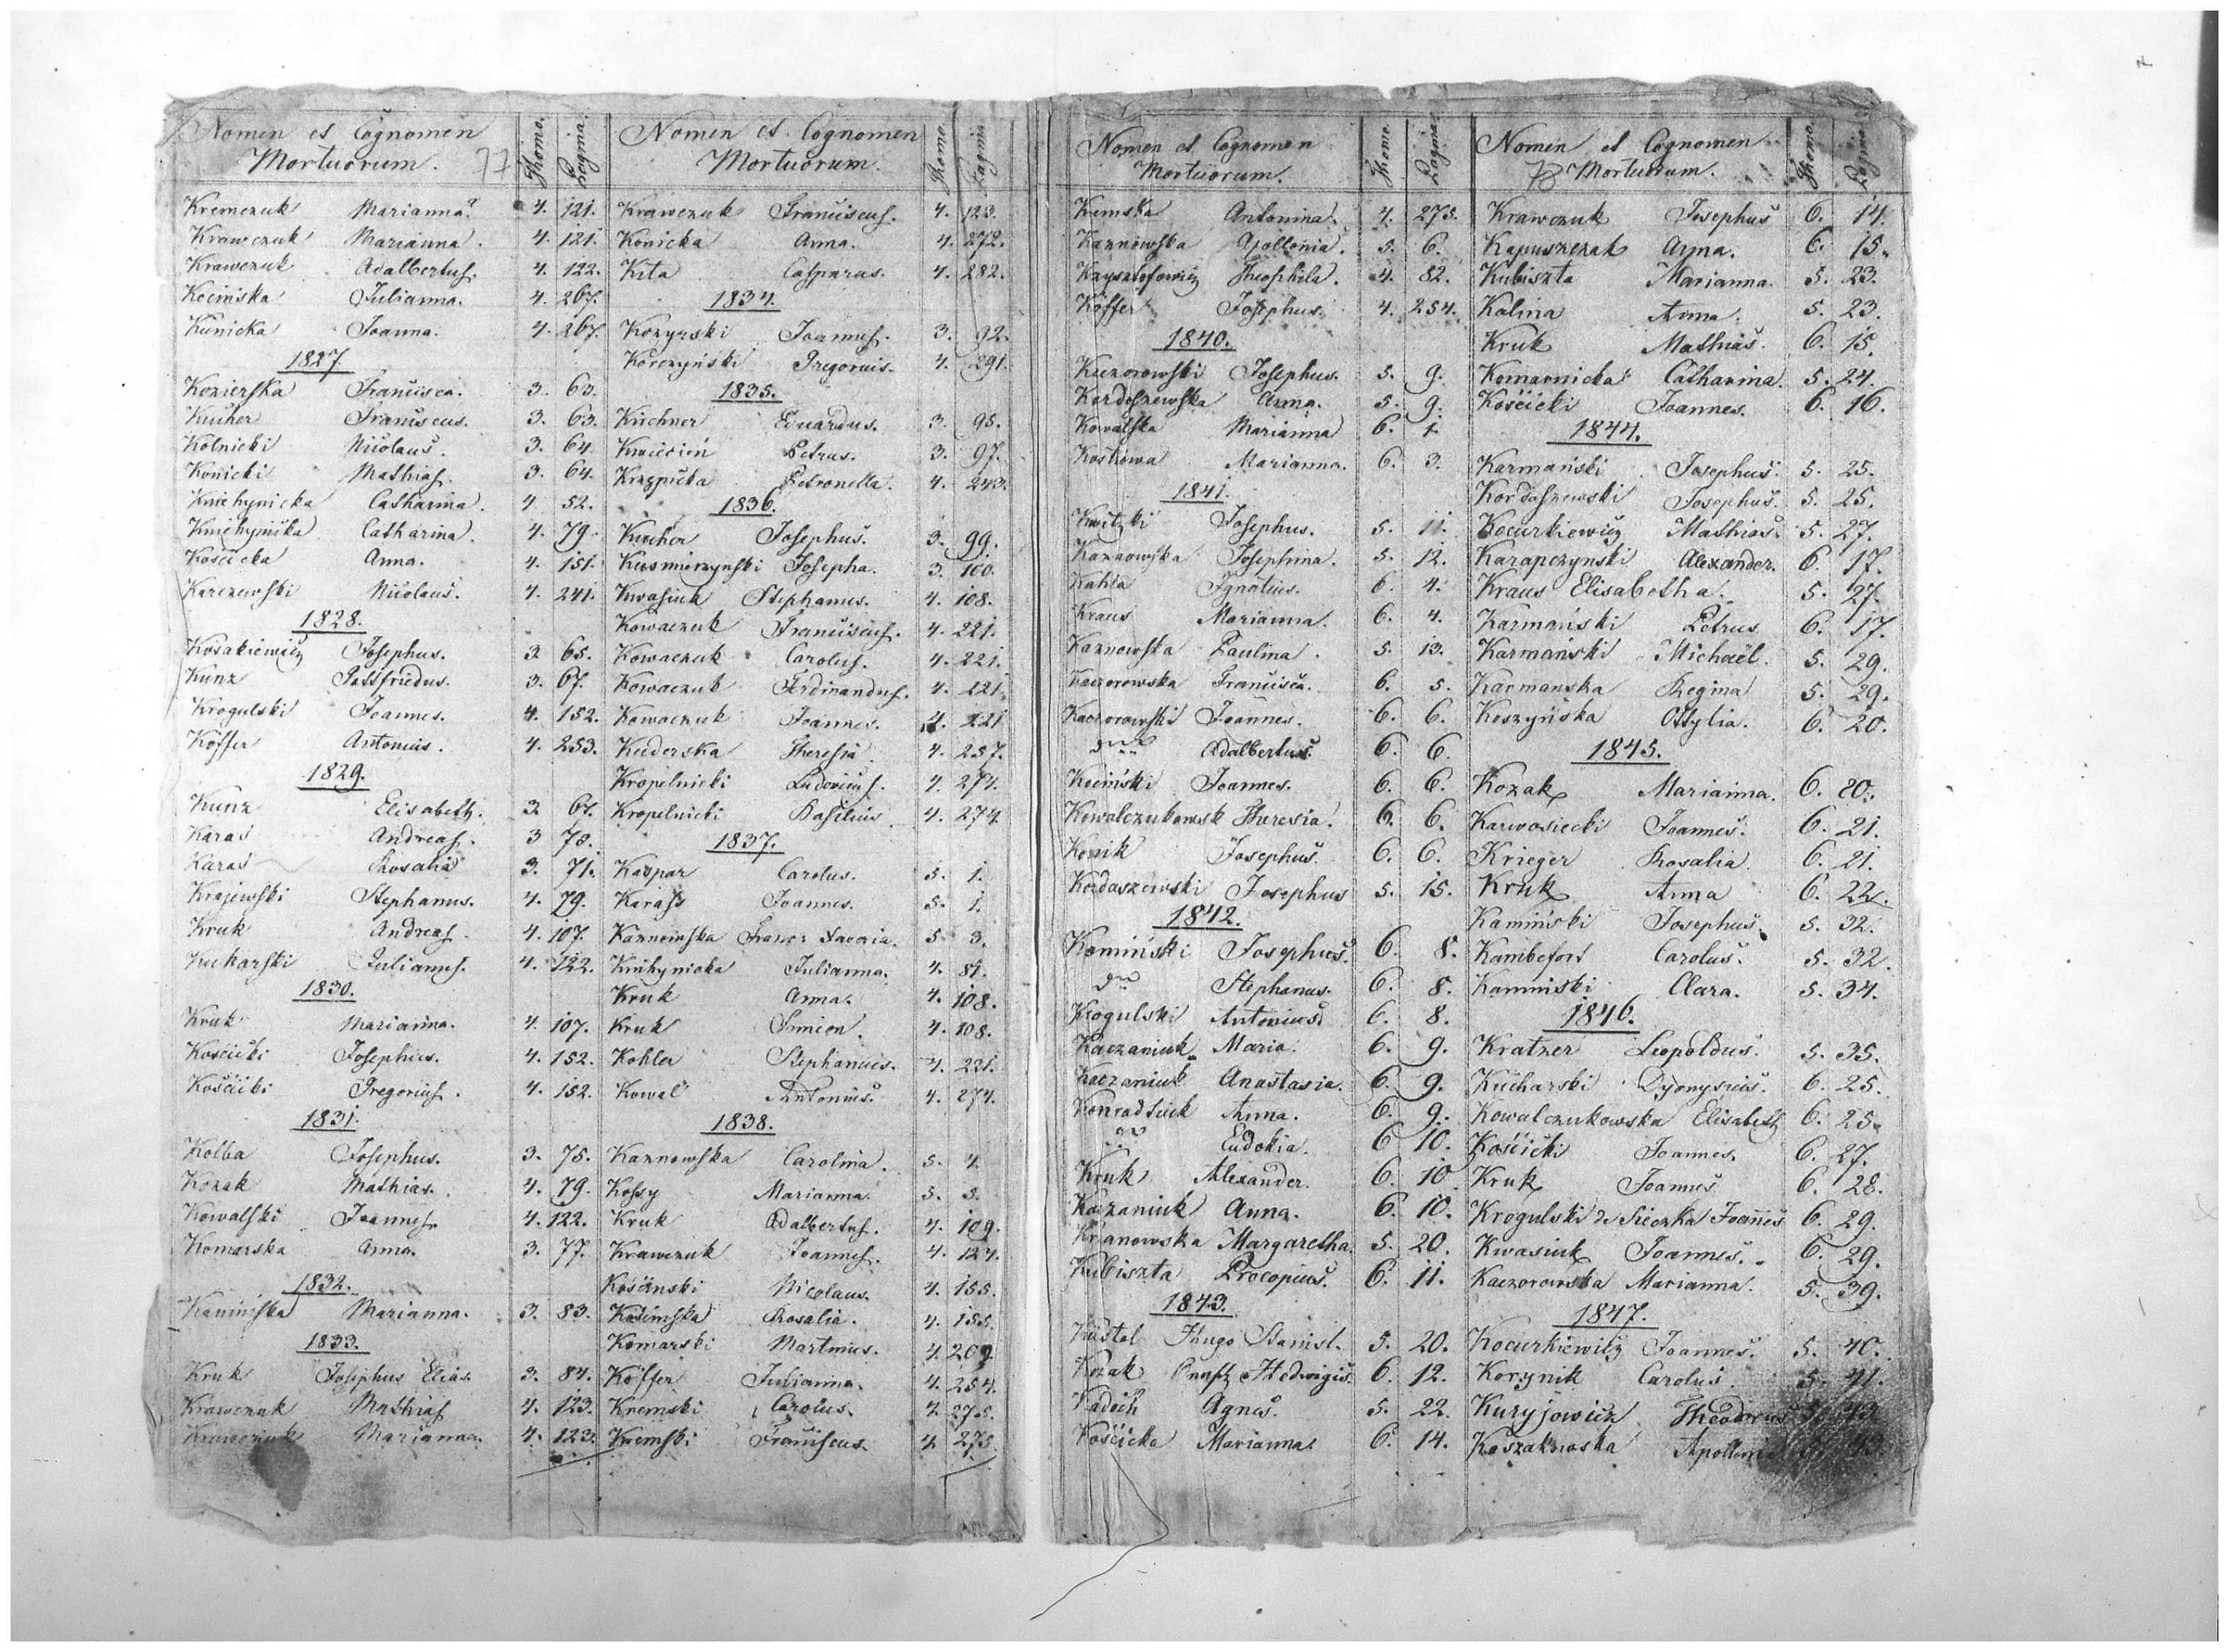 Nomen et Cognomen
Mortuorum. 77
Thomo. Pagina.
Kremczuk Marianna. 4. 121.
Krawczuk Marianna. 4. 121.
Krawczuk Adalbertus. 4. 122.
Kocinska Julianna. 4. 267.
Kunicka Joanna. 4. 267.
1827.
Kozierska Francisca. 3. 63.
Kucher Franciscus. 3. 63.
Kolnicki Nicolaus. 3. 64.
Konicki Mathias. 3. 64.
Kniehynicka Catharina. 4. 52.
Kniehynicka Catharina. 4. 79.
Kościcka Anna. 4. 151.
Karczewski Nicolaus. 4. 241.
1828.
Kosakiewicz Josephus. 3. 65.
Kunz Gottfriedus. 3. 67.
Krogulski Joannes. 4. 152.
Köffer Antonius. 4. 253.
1829.
Kunz Elisabeth. 3. 67.
Karas Andreas. 3. 70.
Karas Rosalia 3. 71.
Krajewski Stephanus. 4. 79.
Kruk Andreas. 4. 107.
Kucharski Julianus. 4. 122.
1830.
Kruk Marianna. 4. 107.
Kościcki Josephus. 4. 152.
Kościcki Gregorius. 4. 152.
1831.
Kolba Josephus. 3. 75.
Kozak Mathias. 4. 79.
Kowalski Joannes. 4. 122.
Komarska Anna. 3. 77.
1832.
Kaminska Marianna. 3. 83.
1833.
Kruk Josephus Elias. 3. 84.
Krawczuk Mathias 4. 123.
Krawczuk Marianna. 4. 123.
Nomen et Cognomen
Mortuorum.
Thomo. Pagina
Krawczuk Franciscus. 4. 123.
Konicka Anna. 4. 272.
Kita Casparus. 4. 282.
1834.
Kozyrski Joannes. 3. 92.
Korczyński Gregorius. 4. 291.
1835.
Kirchner Eduardus. 3. 95.
Kwiecień Petrus. 3. 97.
Krzypicka Petronella. 4. 243.
1836.
Kucher Josephus. 3. 99.
Kusmierzynski Josepha. 3. 100.
Kwasiuk Stephanus. 4. 108.
Kowaczuk Franciscus. 4. 221.
Kowaczuk Carolus. 4. 221.
Kowaczuk Ferdinandus. 4. 221.
Kowaczuk Joannes. 4. 221
Kuderska Theresia 4. 257.
Kropelnicki Ludovicus. 4. 274.
Kropelnicki Basilius 4. 274.
1837.
Kaspar Carolus. 5. 1.
Karass Joannes. 5. 1.
Kaznowska Franc: Xaveria. 5. 3.
Knihynicka Julianna. 4. 81.
Kruk Anna. 4. 108.
Kruk Simion. 4. 108.
Kohler Stephanus. 4. 221.
Kowal Antonius. 4. 274.
1838.
Kaznowska Carolina. 5. 4.
Kossy Marianna. 5. 5.
Kruk Adalbertus. 4. 109.
Krawczuk Joannes. 4. 124.
Kościnski Nicolaus. 4. 155.
Kościnska Rosalia. 4. 155.
Komarski Martinus. 4. 209.
Köffer Julianna. 4. 254.
Kremski Carolus. 4. 275.
Kremski Franciscus. 4. 275.
Nomen et Cognomen
Mortuorum.
Thomo. Pagina
Kremska Antonina. 4. 275.
Kaznowska Apollonia. 5. 6.
Krzysztofowicz Theophila. 4. 82.
Köffer Josephus. 4. 254.
1840.
Kaczorowski Josephus. 5. 9.
Kordaszewska Anna. 5. 9.
Kowalska Marianna 6. 1.
Kostkowa Marianna. 6. 3.
1841.
Josephus. 5. 11.
Kaznowska Josephina. 5. 12.
Ignatius. 6. 4.
Kraus Marianna. 6. 4.
Kaznowska Paulina. 5. 13.
Kaczorowska Francisca. 6. 5.
Kaczorowski Joannes. 6. 6.
dtto Adalbertus. 6. 6.
Kociński Joannes. 6. 6.
Kowalczukowsk Theresia. 6. 6.
Konik Josephus. 6. 6.
Kordaszewski Josephus 5. 15.
1842.
Komiński Josephus. 6. 8.
dtto Stephanus. 6. 8.
Krogulski Antonius. 6. 8.
Kaczaniuk Maria. 6. 9.
Kaczaniuk Anastasia. 6. 9.
Konradsiuk Anna. 6. 9.
dtto Eudokia. 6 10.
Kruk Alexander. 6. 10
Kaczaniuk Anna. 6. 10.
Margaretha. 5. 20.
Kubiszta Procopius. 6. 11.
1843.
Küstel Hugo Stanisl. 5. 20.
Kozak Hedwigis. 6. 12.
Kadoch Agnes. 5. 22.
Kościcka Marianna. 6. 14.
Nomen et Cognomen
78 Mortuorum.
Thomo. Pagina
Krawczuk Josephus 6. 14.
Kapuszczak Anna. 6. 15.
Kubiszta Marianna. 5. 23.
Kalina Anna. 5. 23.
Kruk Mathias. 6. 15.
Komarnicka Catharina. 5. 24.
Kościcki Joannes. 6. 16.
1844.
Karmański Josephus. 5. 25.
Kordaszewski Josephus. 5. 25.
Kocurkiewicz Mathias. 5. 27.
Karapczynski Alexander. 6. 17.
Kraus Elisabetha. 5. 27.
Karmański Petrus 6. 17.
Karmański Michael. 5. 29.
Karmanska Regina 5. 29.
Koszyńska Ottylia. 6. 20.
1845.
Kozak Marianna. 6. 20.
Karwosiecki Joannes. 6. 21.
Krieger Rosalia. 6. 21.
Kruk Anna 6. 22.
Kamiński Josephus. 5. 32.
Kambefort Carolus. 5. 32.
Kaminiski Clara. 5. 34.
1846.
Kratzer Leopoldus. 5. 35.
Kucharski Dyonysius. 6. 25.
Kowalczukowska Elisabeth 6. 25.
Kościcki Joannes. 6. 27.
Kruk Joannes 6. 28.
Krogulski de Sieczka Joannes 6. 29.
Kwasiuk Joannes. 6. 29.
Kaczorowska Marianna. 5. 39.
1847.
Kocurkiewicz Joannes. 5. 40.
Korynik Carolus. 5. 41.
Kuryjowicz Theodorus
Koszakowska Apollonia